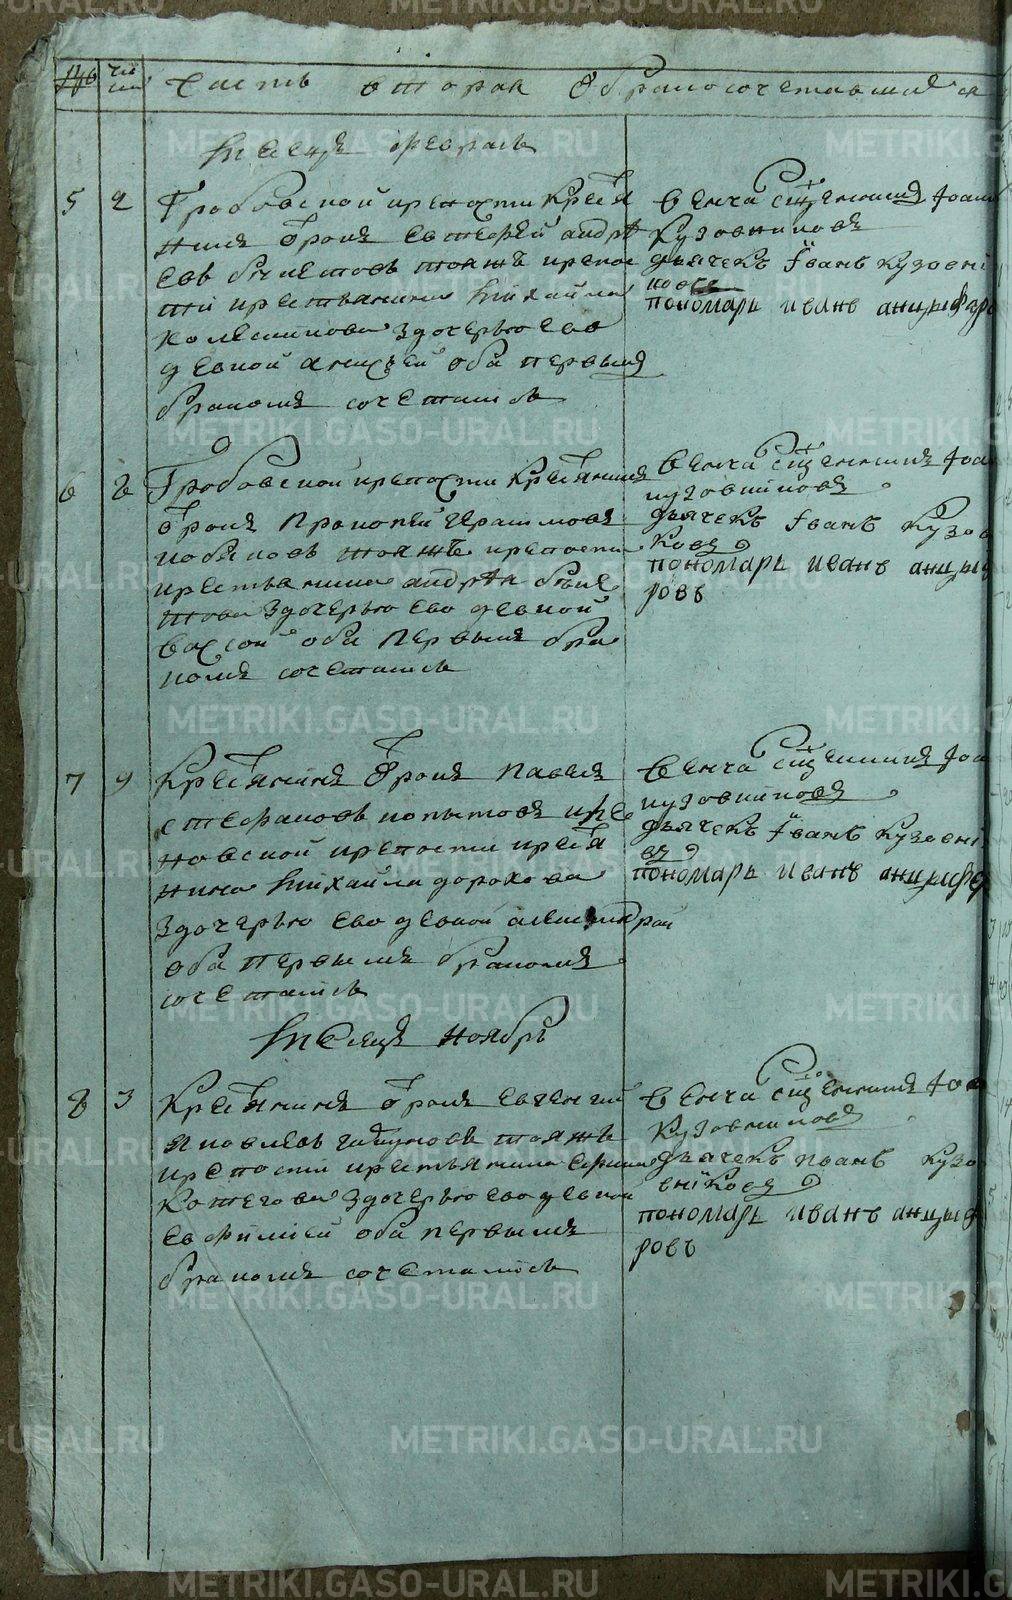 № чи сло Часть вторая О бракосочетавшихся
месяцъ февраль
5 2 Гробовской крепости крестья
нинъ
андре
евъ тояжъ крепос
ти крестьянина михайла
колесникова здочерью ево
девкой оба первымъ
бракомъ сочетались
венча священникъ Іоаннъ
кузовниковъ
дьячекъ Іванъ кузовні
ковъ
пономарь иванъ анцыфуро
6 Гробовской крепости крестьянинъ
отрокъ прокопей герасимовъ
тояжъ крепости
крестьянина андрея
това здочерью ево девкой
оба первымъ бра
комъ сочетались
венча священникъ Іоа
кузовниковъ
дьячекъ Іванъ кузов
ковъ
пономарь иванъ анцыф
ровъ
7 9 крестьянинъ отрокъ павелъ
стефановъ копытовъ кле
новской крепости крестья
нина михайла дорохова
здочерью ево девкой александрой
оба первымъ бракомъ
сочетались
венча священникъ Іоа
кузовниковъ
дьячекъ Іванъ кузовні
въ
пономарь иванъ анцыфе
месяцъ ноябрь
8 3 крестьянинъ отрокъ евгений
яковлевъ тояжъ
крепости крестьянина
здочерью ево девкой
евфимией оба первымъ
бракомъ сочетались
венча священникъ Іоа
кузовниковъ
дьячекъ иванъ кузо
вніковъ
пономарь иванъ анцыф
ровъ
METRIKI.GASO-URAL.RU